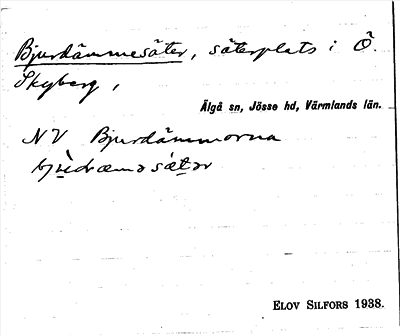 Bjurdämmesäter, säterplats i Ö.
Skyberg,
Älgå sn, Jösse hd, Värmlands län.
NV Bjurdämmorna
ELOV SILFORS 1938.